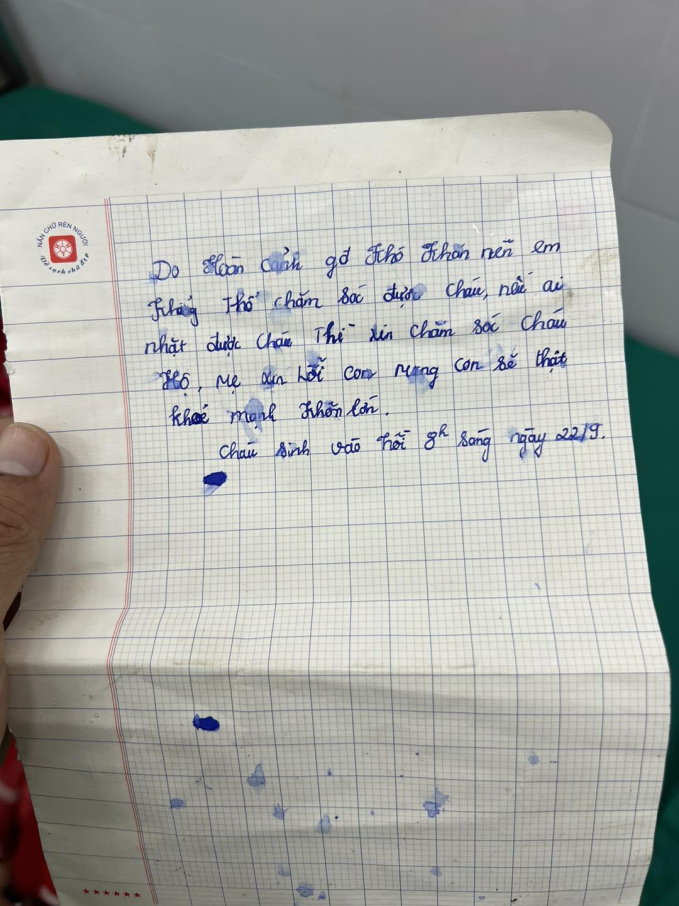 NẮN CHỮ RÈN NGƯỜI
Vở sạch chữ đẹp
Do Hoàn cảnh gđ khó khăn nên em
không thể chăm sóc được cháu, nếu ai
nhặt được cháu thì xin chăm sóc cháu
Hộ, Mẹ xin lỗi con mong con sẽ thật
khoẻ mạnh khôn lớn.
Cháu sinh vào hồi 8h sáng ngày 22/9.